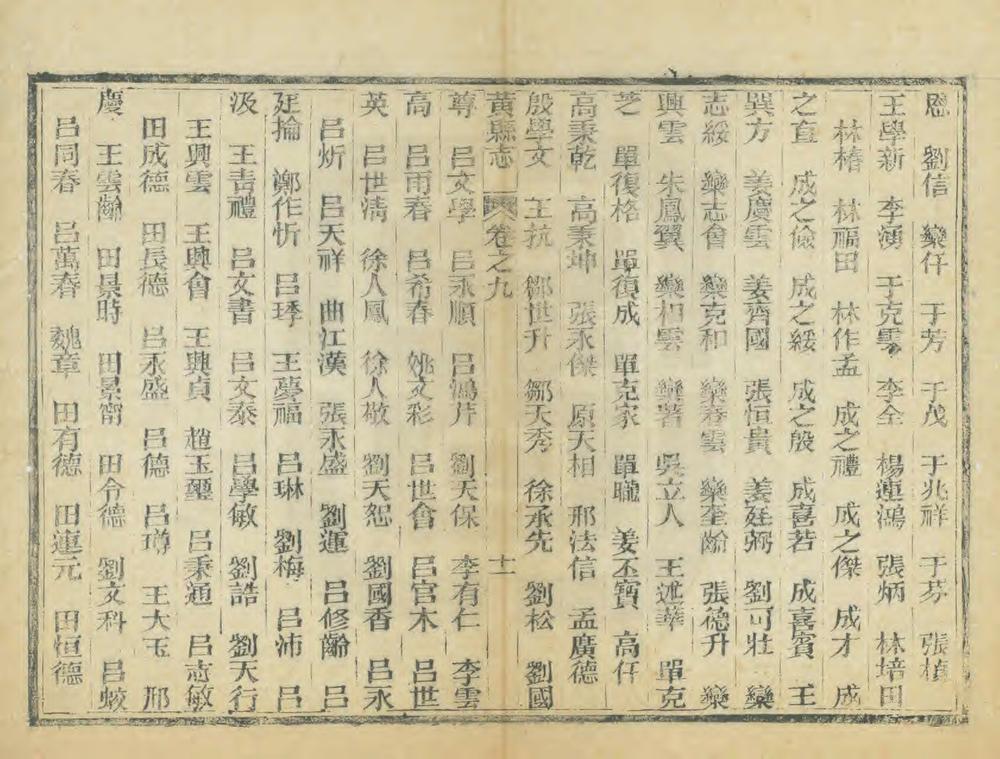 恩 劉信 欒仟 于芳 于茂 于兆祥 于芬 張楨
王學新 李漢 于克雲 李全 楊蓮鴻 張炳 林培田
林椿 林福田 林作孟 成之禮 成之傑 成才 成
之直 成之儉 成之綏 成之殷 成喜若 成喜賓 王
巽方 姜慶雲 姜齊國 張恒貴 姜廷弼 劉可壯 欒
志綏 欒志會 欒克和 欒春雲 欒奎齡 張德升 欒
興雲 朱鳳翼 欒相雲 欒著 吳立人 王述華 單克
芝 單復格 單復成 單克家 單曨 姜丕寶 高仟
高秉乾 高秉坤 張永傑 原天相 邢法信 孟廣德
殷學文 王抗 鄒世升 鄒天秀 徐承先 劉松 劉國
黃縣志 卷之九 十一
尊 呂文學 呂永順 呂鴻芹 劉天保 李有仁 李雲
高 呂雨春 呂希春 姚文彩 呂世會 呂官木 呂世
英 呂世清 徐人鳳 徐人敬 劉天恕 劉國香 呂永
呂炘 呂天祥 曲江漢 張永盛 劉運 呂修齡 呂
延掄 鄭作忻 呂琇 王夢福 呂琳 劉梅 呂沛 呂
汲 王書禮 呂文書 呂文泰 呂學敏 劉誥 劉天行
王興雲 王興會 王興貞 趙玉璽 呂秉通 呂志敏
田成德 田長德 呂永盛 呂德 呂墫 王大玉 邢
慶 王雲齡 田景時 田景甯 田令德 劉文科 呂蛟
呂同春 呂萬春 魏章 田有德 田連元 田恒德